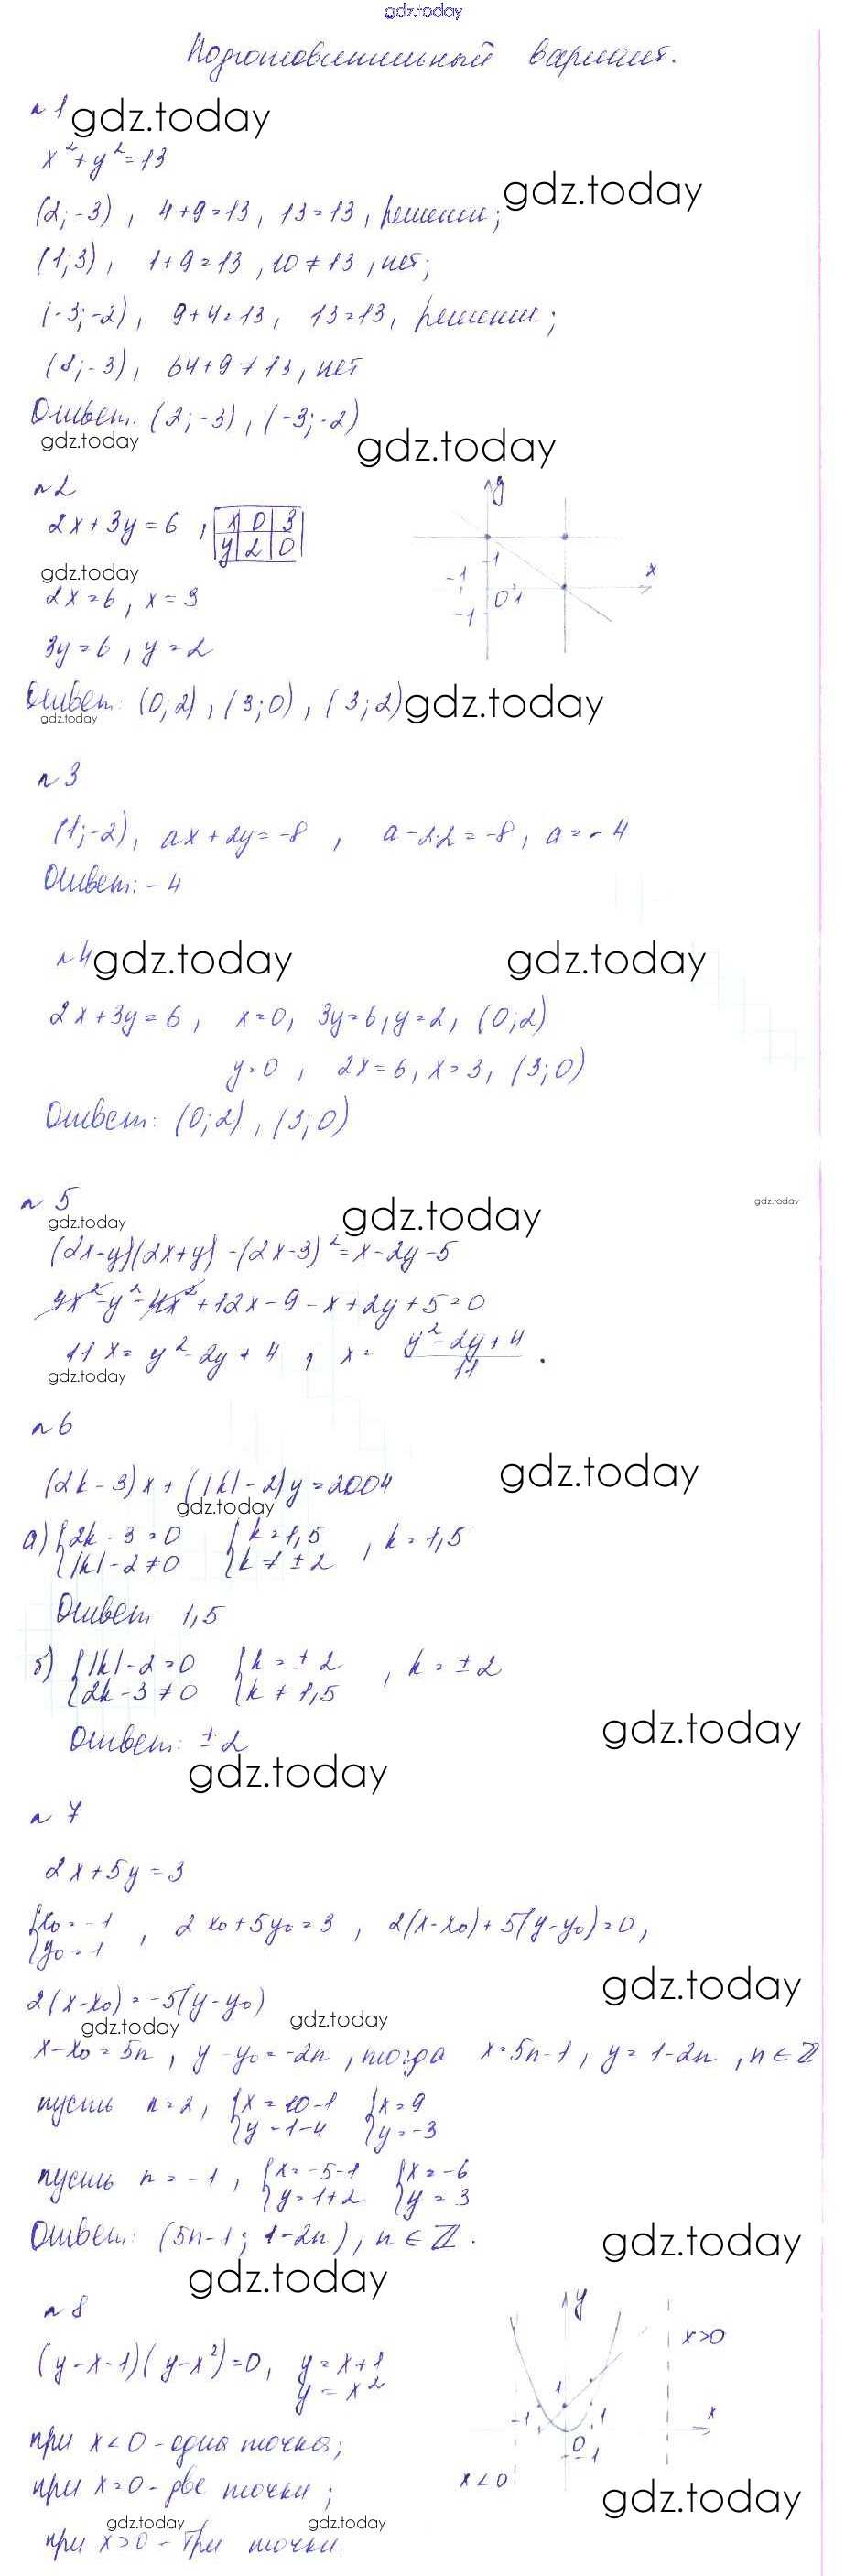 gdz.today
Подготовительный вариант.
№1 gdz.today
x² + y² = 13
gdz.today
(2; -3), 4+9=13, 13=13, решение;
(1; 3), 1+9=13, 10≠13, нет;
(-3; -2), 9+4=13, 13=13, решение;
(8; -3), 64+9≠13, нет
Ответ: (2; -3), (-3; -2)
gdz.today gdz.today
№2
2x+3y=6, x 0 3
y 2 0
y
1
-1
x
0 1
-1
gdz.today
2x=6, x=3
3y=6, y=2
Ответ: (0; 2), (3; 0), (3; 2) gdz.today
gdz.today
№3
(1; -2), ax+2y=-8, a-2·2=-8, a=-4
Ответ: -4
№4 gdz.today gdz.today
2x+3y=6, x=0, 3y=6, y=2, (0; 2)
y=0, 2x=6, x=3, (3; 0)
Ответ: (0; 2), (3; 0)
№5
gdz.today gdz.today gdz.today
(2x-y)(2x+y)-(2x-3)²=x-2y-5
4x²-y²-4x²+12x-9-x+2y+5=0
11x=y²-2y+4, x= y²-2y+4
11 .
gdz.today
№6
(2k-3)x+(|k|-2)y=2004
gdz.today
gdz.today
а) {2k-3=0 {k=1,5 , k=1,5
{|k|-2≠0 {k≠±2
Ответ: 1,5
б) {|k|-2=0 {k=±2 , k=±2
{2k-3≠0 {k≠1,5
Ответ: ±2
gdz.today
gdz.today
№7
2x+5y=3
{x₀=-1 , 2x₀+5y₀=3, 2(x-x₀)+5(y-y₀)=0,
{y₀=1
2(x-x₀)=-5(y-y₀)
gdz.today
gdz.today gdz.today
x-x₀=5n, y-y₀=-2n, тогда x=5n-1, y=1-2n, n∈ℤ
пусть n=2, {x=10-1 {x=9
{y=1-4 {y=-3
пусть n=-1, {x=-5-1 {x=-6
{y=1+2 {y=3
Ответ: (5n-1; 1-2n), n∈ℤ.
gdz.today
gdz.today
№8
(y-x-1)(y-x²)=0, y=x+1
y=x²
y
x>0
1
-1 1
x
0
-1
x<0
при x<0 - одна точка;
при x=0 - две точки;
gdz.today
gdz.today gdz.today
при x>0 - три точки.